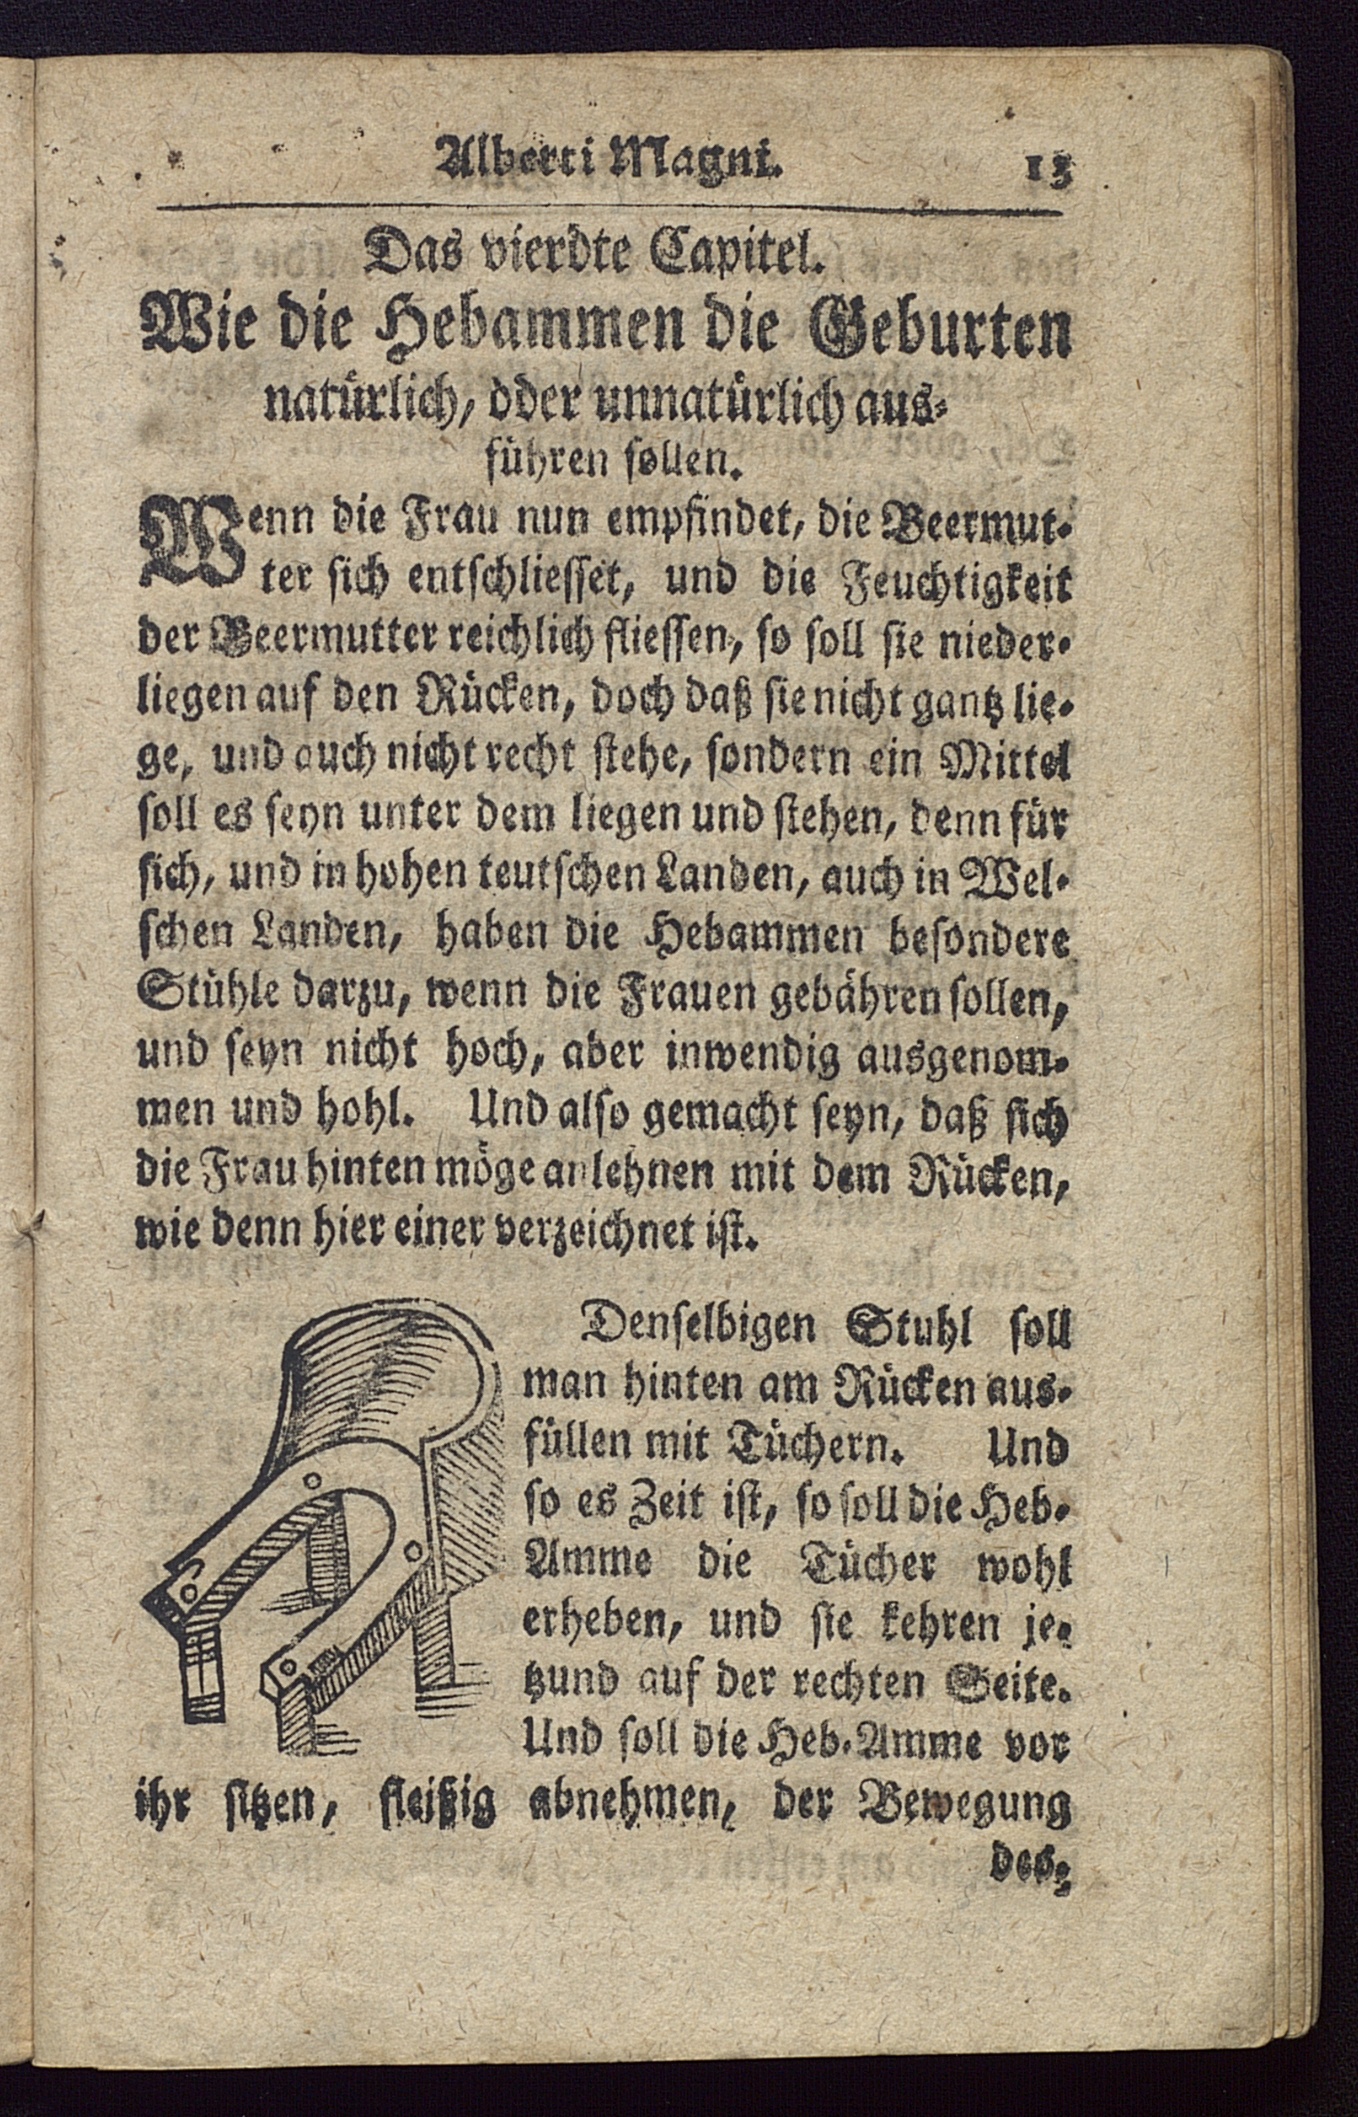 Alberti Magni. 13
Das vierdte Capitel.
Wie die Hebammen die Geburten
natürlich, oder unnatürlich aus-
führen sollen.
Wenn die Frau nun empfindet, die Beermut-
ter sich entschliesset, und die Feuchtigkeit
der Beermutter reichlich fliessen, so soll sie nieder-
liegen auf den Rücken, doch daß sie nicht gantz lie-
ge, und auch nicht recht stehe, sondern ein Mittel
soll es seyn unter dem liegen und stehen, denn für
sich, und in hohen teutschen Landen, auch in Wel-
schen Landen, haben die Hebammen besondere
Stühle darzu, wenn die Frauen gebähren sollen,
und seyn nicht hoch, aber inwendig ausgenom-
men und hohl. Und also gemacht seyn, daß sich
die Frau hinten möge anlehnen mit dem Rücken,
wie denn hier einer verzeichnet ist.
Denselbigen Stuhl soll
man hinten am Rücken aus-
füllen mit Tüchern. Und
so es Zeit ist, so soll die Heb-
Amme die Tücher wohl
erheben, und sie kehren je-
tzund auf der rechten Seite.
Und soll die Heb-Amme vor
ihr sitzen, fleißig abnehmen, der Bewegung
des-